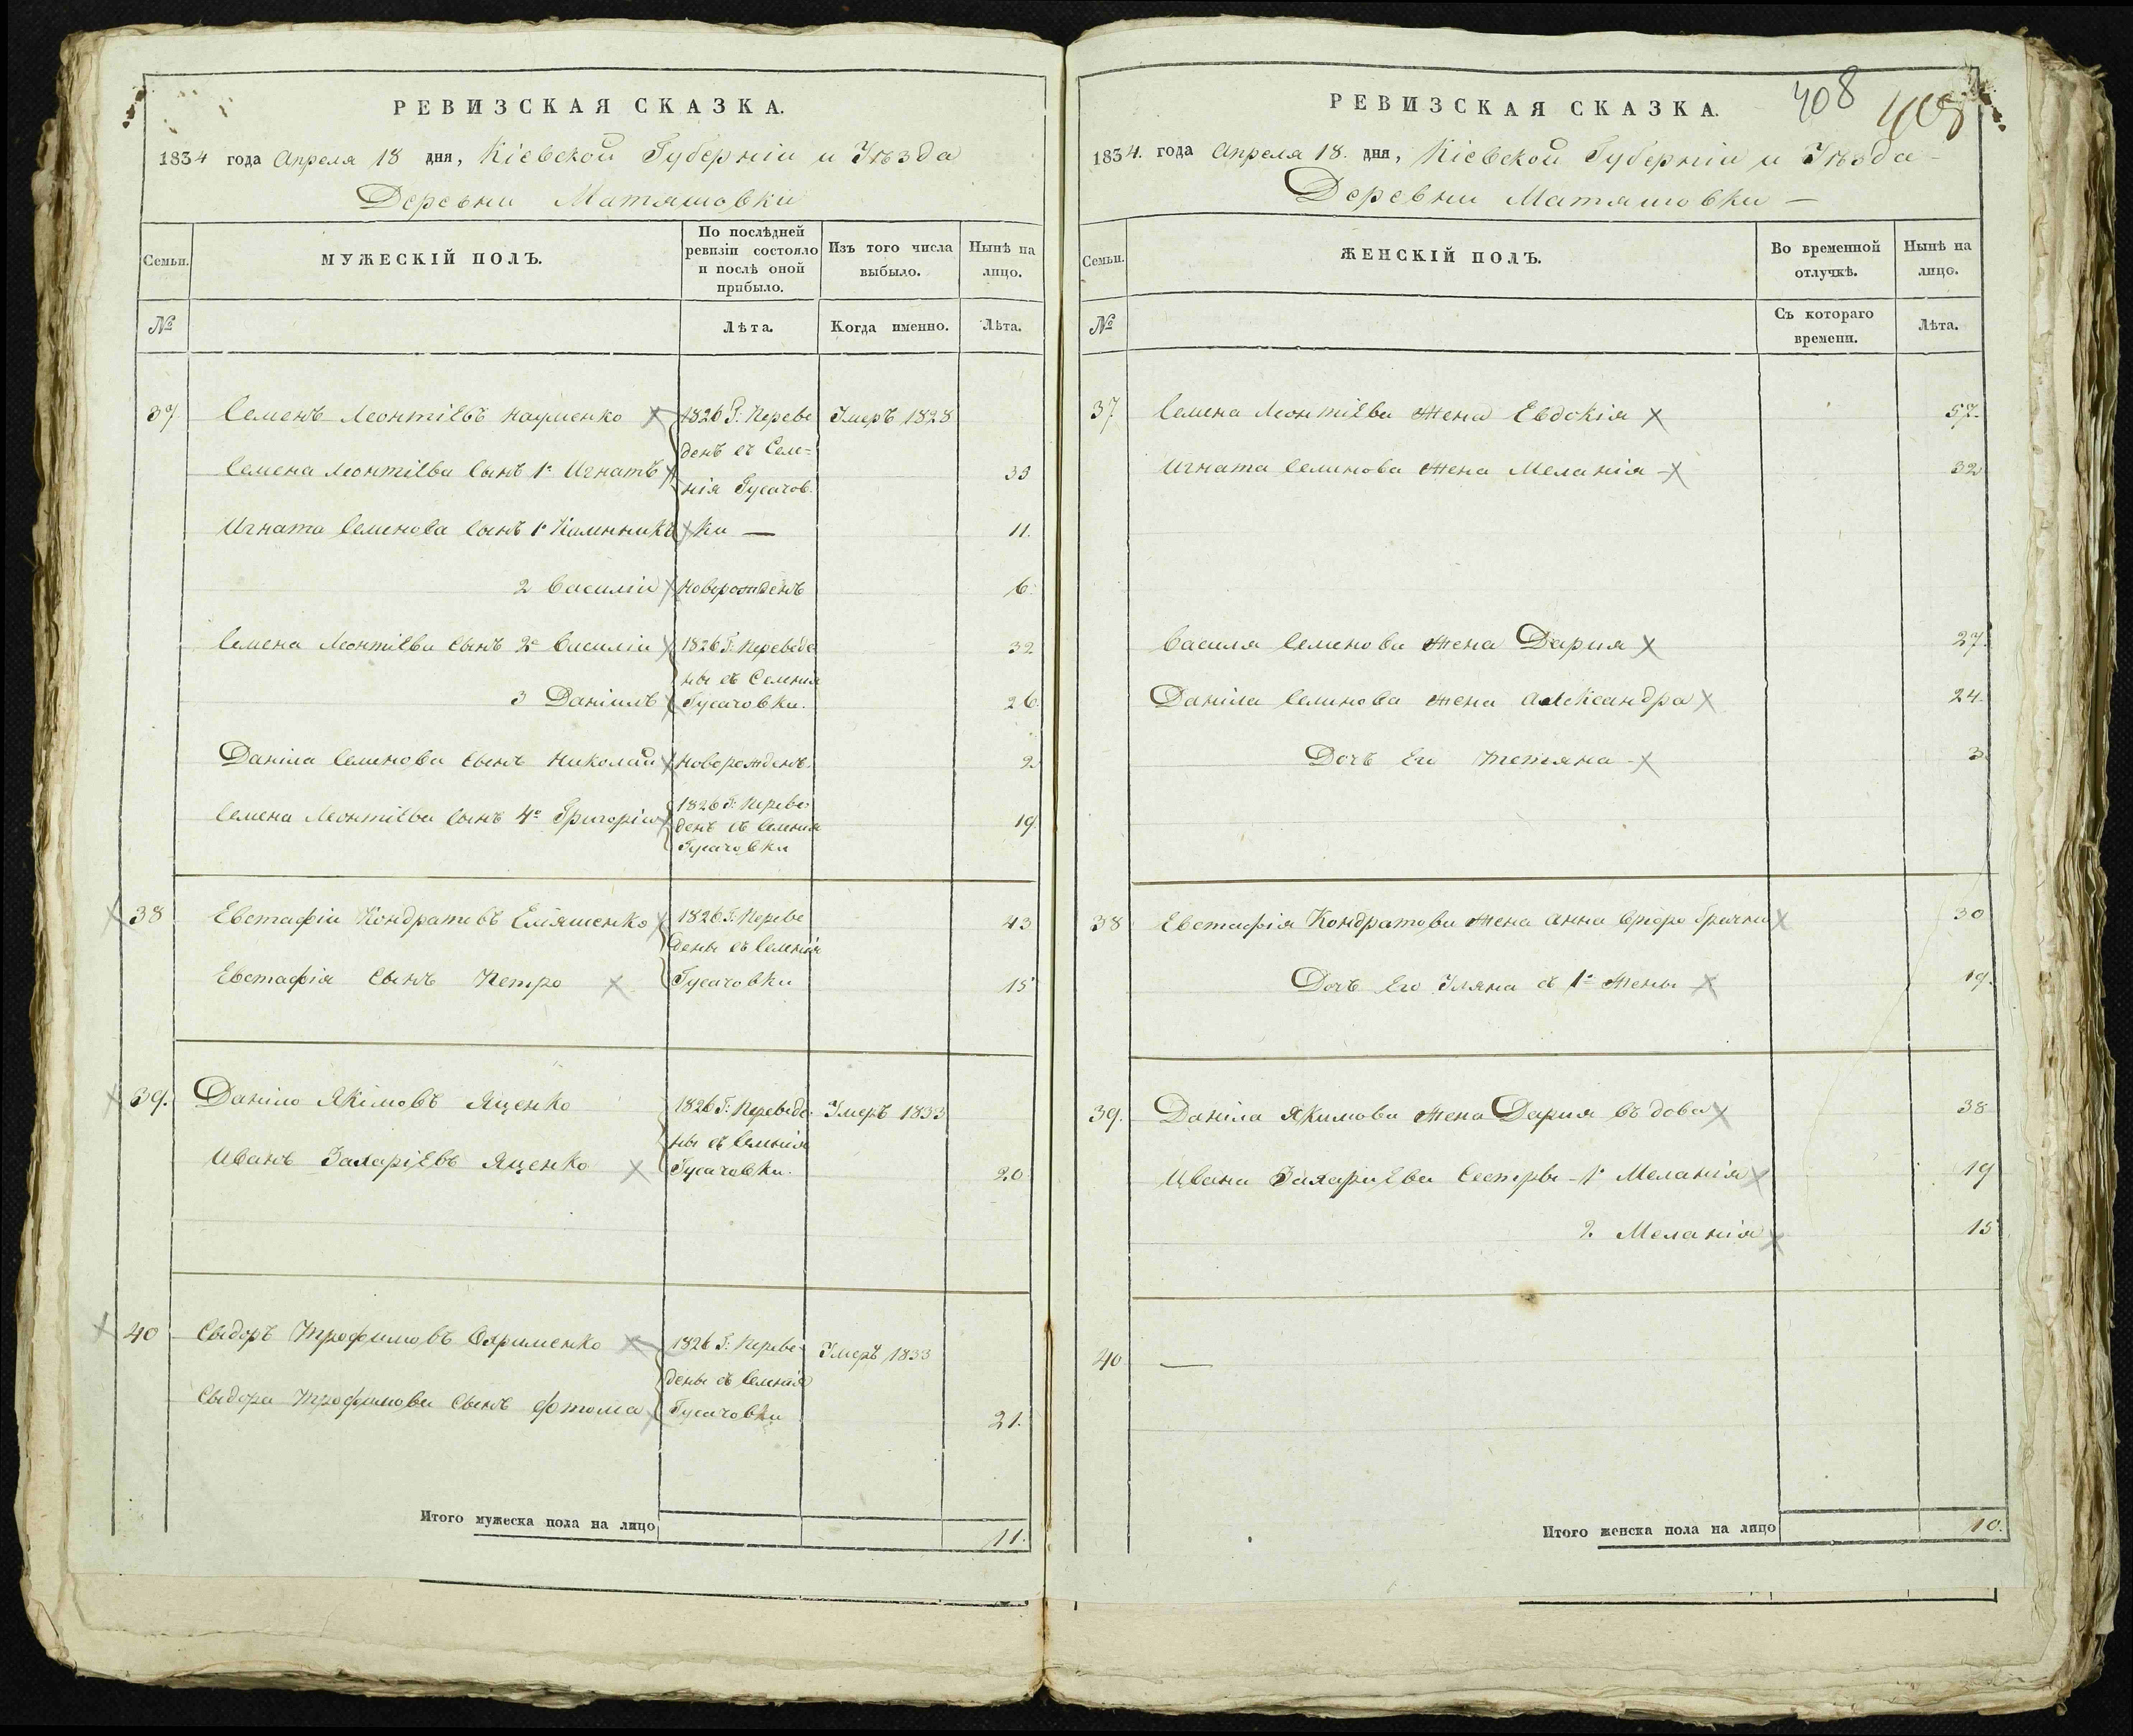 РЕВИЗСКАЯ СКАЗКА.
1834 года Апреля 18 дня, Кіевской Губерніи и Уѣзда
Деревни Матяшовки
Семьи.
МУЖЕСКІЙ ПОЛЪ.
По послѣдней
ревизіи состояло
и послѣ оной
прибыло.
Изъ того числа
выбыло.
Нынѣ на
лицо.
№
Лѣта.
Когда именно.
Лѣта.
37 Семенъ Леонтіевъ Науменко 1826 Г: Переве Умеръ 1828
денъ съ Селе=
Семена Леонтіева Сынъ 1й Игнатъ 33
нія Гусачов
Игната Семенова Сынъ 1й Калинникъ ки — 11.
2 Василій Новорожденъ 6.
Семена Леонтіева Сынъ 2й Василій 1826 Г: Переведе 32
ны съ Селения
3 Даніилъ Гусачовки. 26
Даніла Семенова Сынъ Николай Новорожденъ. 2
Семена Леонтіева Сынъ 4й Григорій 1826 Г: Переве 19
денъ съ Селения
Гусачовки
38 Евстафій Кондратовъ Еліяшенко 1826 Г: Переве 43
дены съ Селенія
Евстафія Сынъ Петро Гусачовки 15
39. Даніло Якімовъ Яценко 1826 Г: Переведе Умеръ 1833
ны съ Селенія
Иванъ Захаріевъ Яценко Гусачовки. 20
40 Сыдоръ Трофимовъ 1826 Г: Переве Умеръ 1833
дены съ Селенія
Сыдора Трофимова Сынъ Гусачовки 21.
Итого мужеска пола на лицо 11.
408
РЕВИЗСКАЯ СКАЗКА.
1834. года Апреля 18. дня, Кіевской Губерніи и Уѣзда
Деревни Матяшовки —
Семьи.
ЖЕНСКІЙ ПОЛЪ.
Во временной
отлучкѣ.
Нынѣ на
лицо.
№
Съ котораго
времени.
Лѣта.
37 Семена Леонтіева Жена Евдокія 57.
Игната Семенова Жена Меланія 32
Василя Семенова Жена Дария 27.
Даніла Семенова Жена Александра 24.
Дочъ Его Тетяна 3.
38 Евстафія Кондратова Жена Анна второбрачна 30
Дочъ Его Уляна съ 1й Жены 19.
39. Даніла Якимова Жена Дария Въдова 38
Ивана Захариева Сестры 1я Меланія 19
2. Меланія 15
40 —
Итого женска пола на лицо 10.